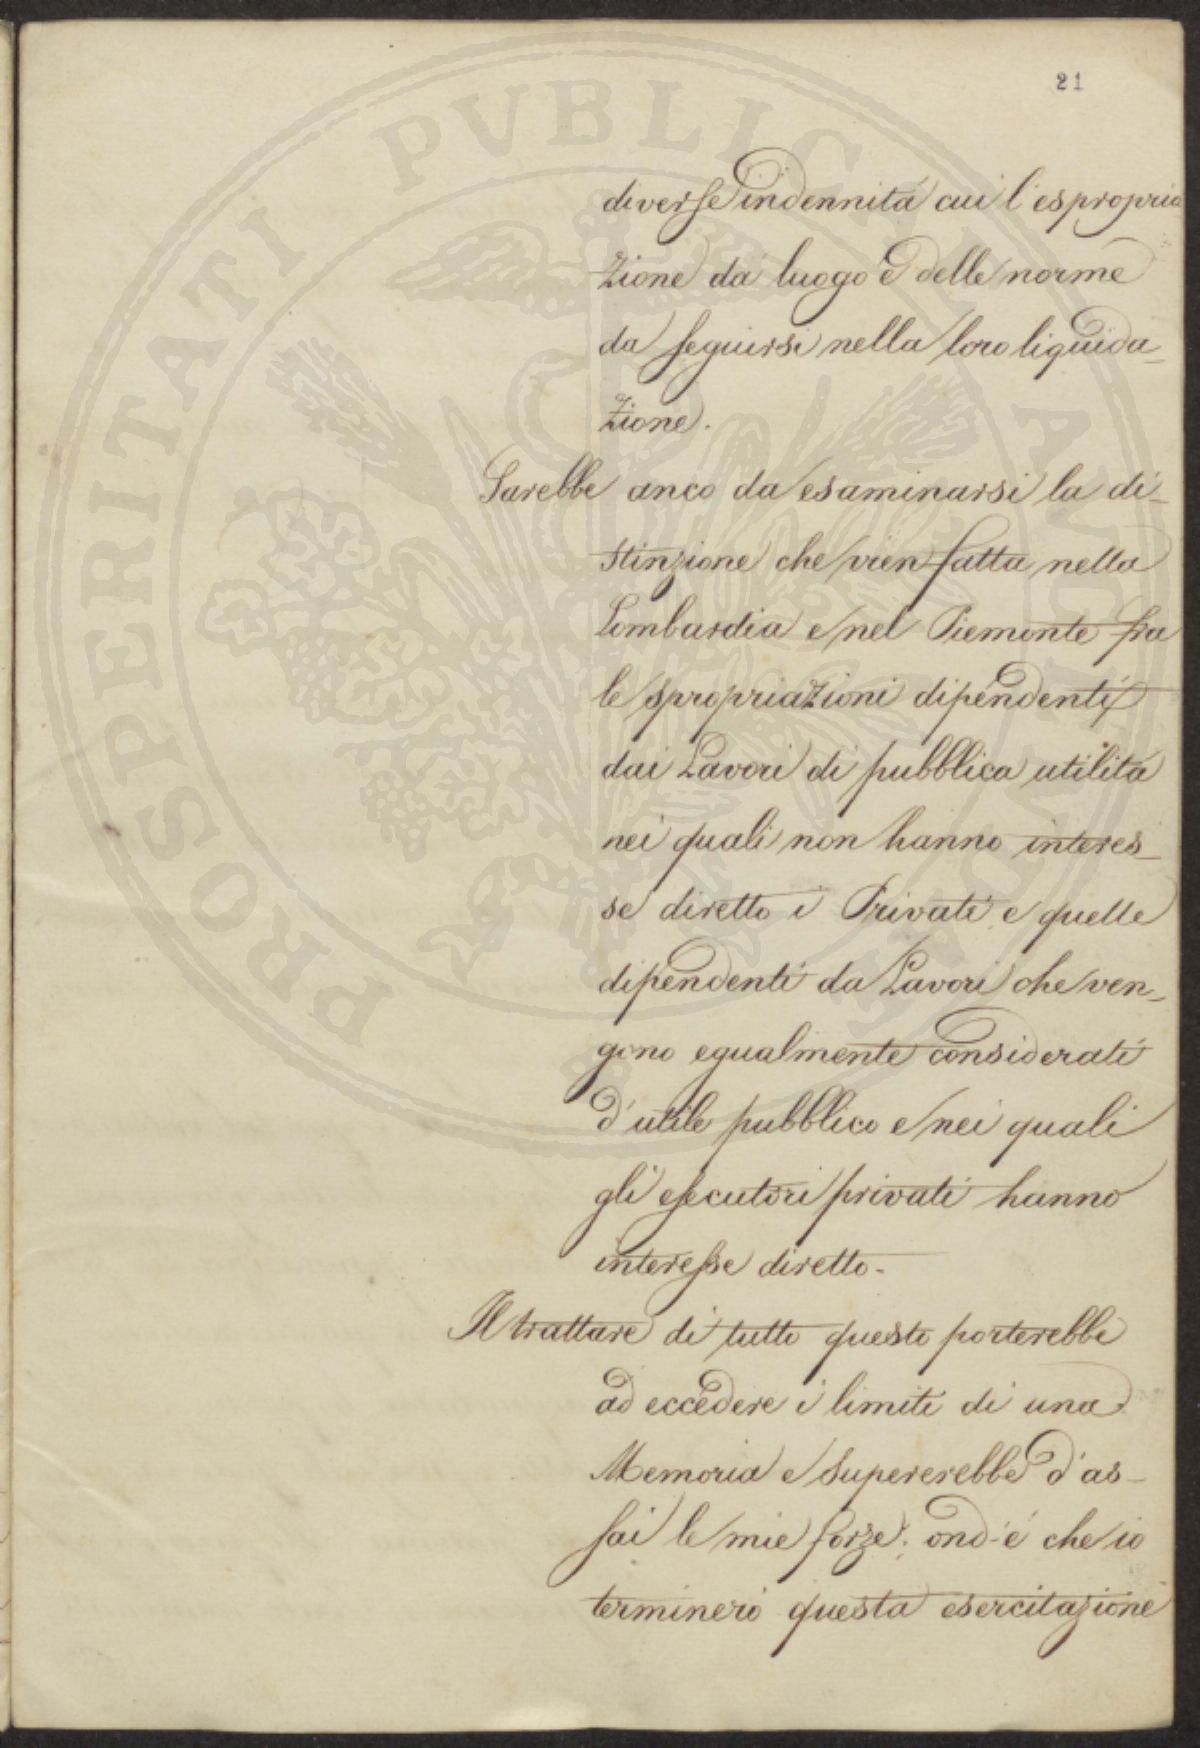 21
PROSPERITATI PVBLICAE AVGENDAE
diverse indennità cui l'espropria
zione dà luogo e delle norme
da seguirsi nella loro liquida-
zione.
Sarebbe anco da esaminarsi la di-
stinzione che vien fatta nella
Lombardia e nel Piemonte fra
le spropriazioni dipendenti
dai Lavori di pubblica utilità
nei quali non hanno interes-
se diretto i Privati e quelle
dipendenti da Lavori che ven-
gono egualmente considerati
d'utile pubblico e nei quali
gli esecutori privati hanno
interesse diretto.
Il trattare di tutto questo porterebbe
ad eccedere i limiti di una
Memoria e supererebbe d'as-
sai le mie forze; ond'è che io
terminerò questa esercitazione